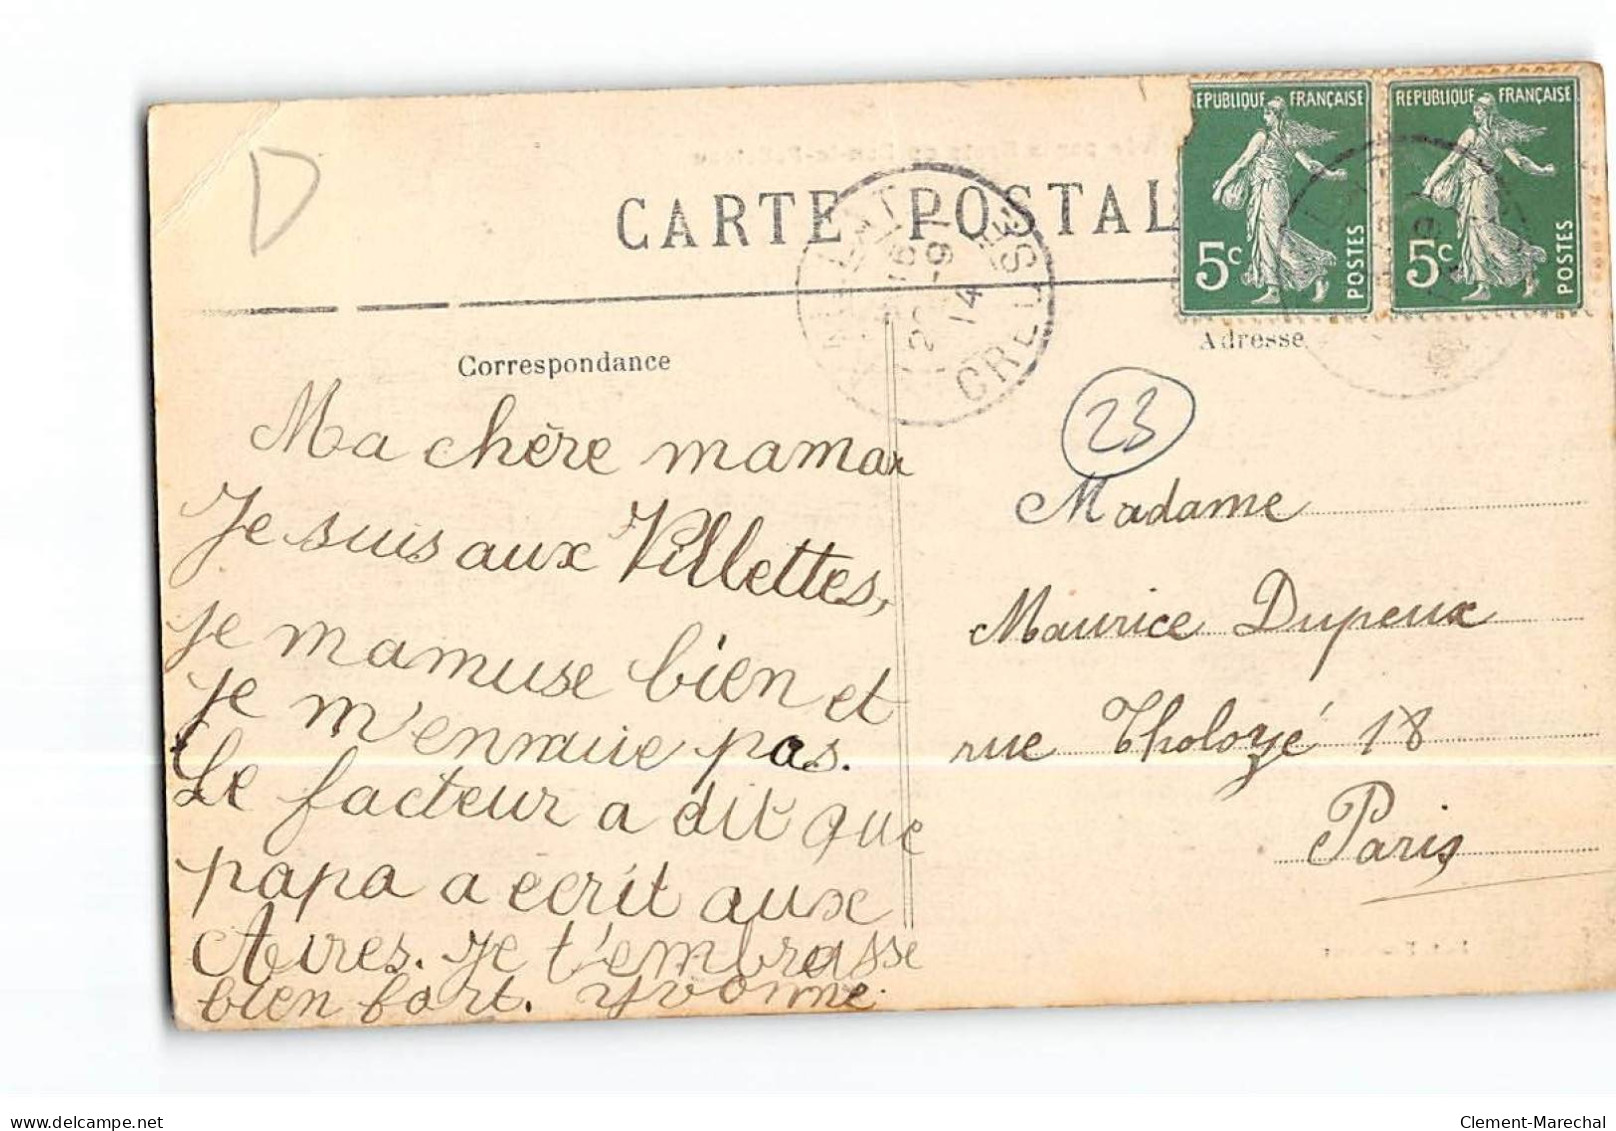 D
CARTE POSTAL
REPUBLIQUE FRANÇAISE
5c
POSTES
REPUBLIQUE FRANÇAISE
5c
POSTES
16
20 -9
14
CREUSE
Correspondance
Adresse
Ma chère maman
Je suis aux Villettes,
je mamuse bien et
je m'ennuie pas.
Le facteur a dit que
papa a ecrit aux
Aires. Je t'embrasse
bien fort. Yvonne.
23
Madame
Maurice Dupeux
rue Tholozé 18
Paris
delcampe.net
Clement-Marechal